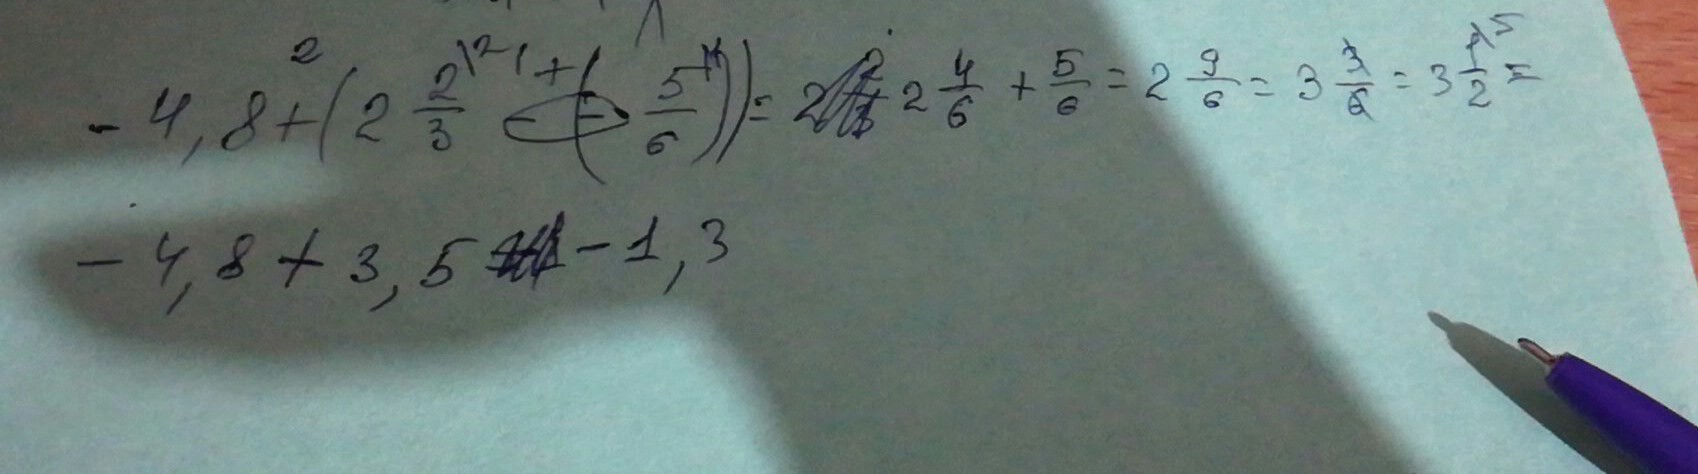 - 4,8 + (2 2/3 - (- 5/6)) = 2 4/6 + 5/6 = 2 9/6 = 3 3/6 = 3 1/2 =
- 4,8 + 3,5 - 1,3